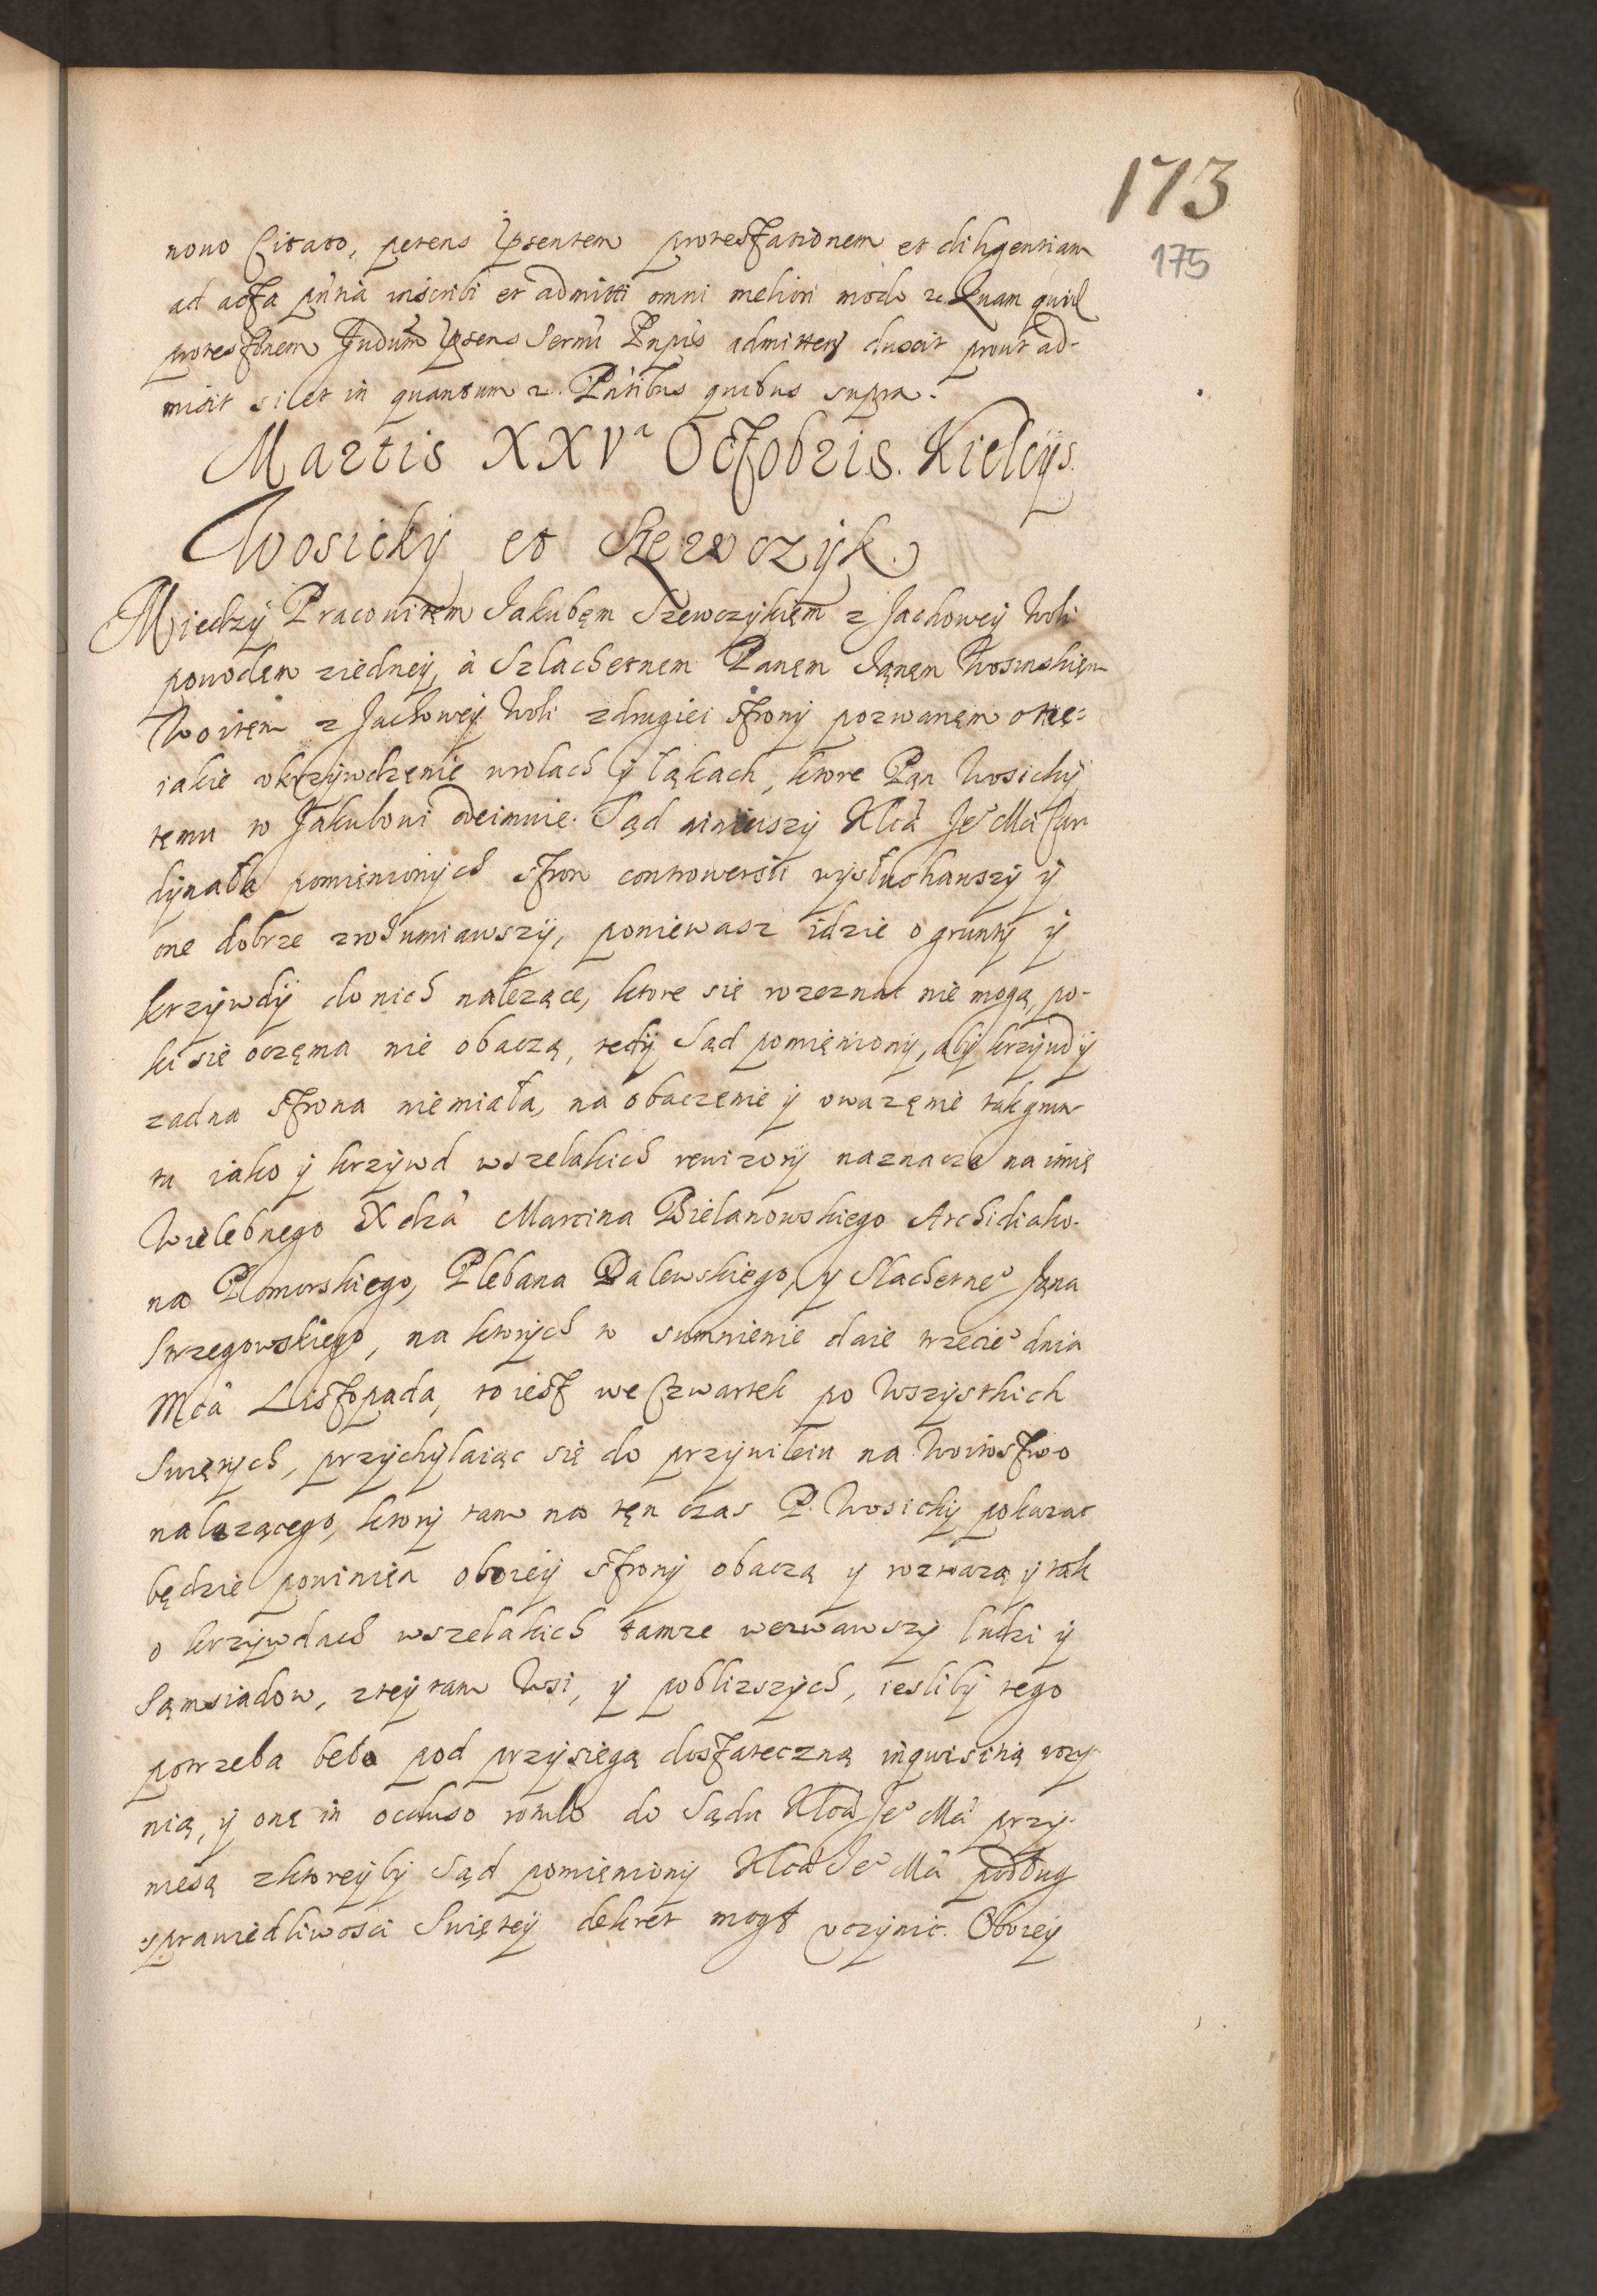 173
175
nouo Citato, petens Ipsentem protestationem et diligentiam
ad acta pñtia inscribi et admitti omni meliori modo &c. Quam quid
protestnem Judum Ipsens Sermi Pnpis admitten duxit prout ad-
misit si et in quantum &c. Pñtibus quibus supra.
Martis XXVª Octobris. Kielcijs.
Wosickij et Szewczijk.
Miedzij Pracowitęm Jakubęm Szewczykięm z Jachowej Woli
powodęm ziednej, à Szlachetnem Panęm Janęm Wosinskięm
Woitęm z Jachowej Woli z drugiei strony pozwanęm o nię-
iakie vkrzywdzęnie w rolach ij łąkach, ktore Pan Wosickij
tęmu to Jakubowi odeimuie. Sąd ninieiszij Xcia Jeº Mci Car
dynała pomięnionych stron controwersii wysłuchawszy ij
one dobrze zrosumiawszij, poniewasz idzie o grunty ij
krzywdij do nich nalezące, ktore się rozeznac nie mogą, po-
ki się oczęma nie obaczą, tedij Sąd pomięniony, aby krzywdij
zadna strona nie miała, na obaczęnie ij vwazęnie tak grun
tu iako ij krzywd wszelakich rewizory naznacza na imię
Wielebnego Xdza Marcina Bielanowskiego Archidiako-
na Pomorskiego, Plebana Dalewskiego, y Slachetneº Jana
Strzegowskiego, na ktorych to sumnienie daie trzecieº dnia
Mca Listopada, to iest we Czwartek po Wszystkich
Swiętych, przychylaiąc się do przywileiu na Woitostwo
nalezącego, ktory tam na tęn czas P. Wosicky pokazac
będzie powinięn oboiej strony obaczą y rozwazą y tak
o krzywdach wszelakich tamze wezwawszy ludzi ij
Sąmsiadow, z tej tam Wsi, ij poblizszych, iesliby tego
potrzeba beła pod przysięgą dostateczną inquisitią vczy-
nią, ij onę in occluso rotulo do Sądu Xcia Jeº Mci przy-
niesą z ktorejby Sąd pomięniony Xcia Jeº Mci podług
sprawiedliwosci Swiętej dekret mogł vczynic. Oboiej